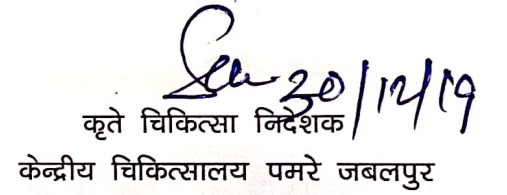 20/12/19
कृते चिकित्सा निदेशक
केन्द्रीय चिकित्सालय पमरे जबलपुर